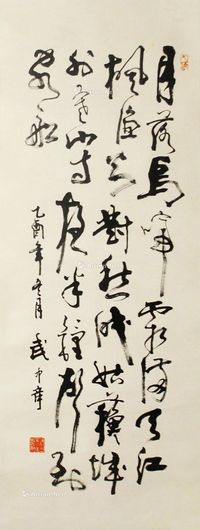 月落烏啼霜滿天江
楓漁火對愁眠姑蘇城
外寒山寺夜半鐘聲到
客船
乙酉年冬月
武中奇